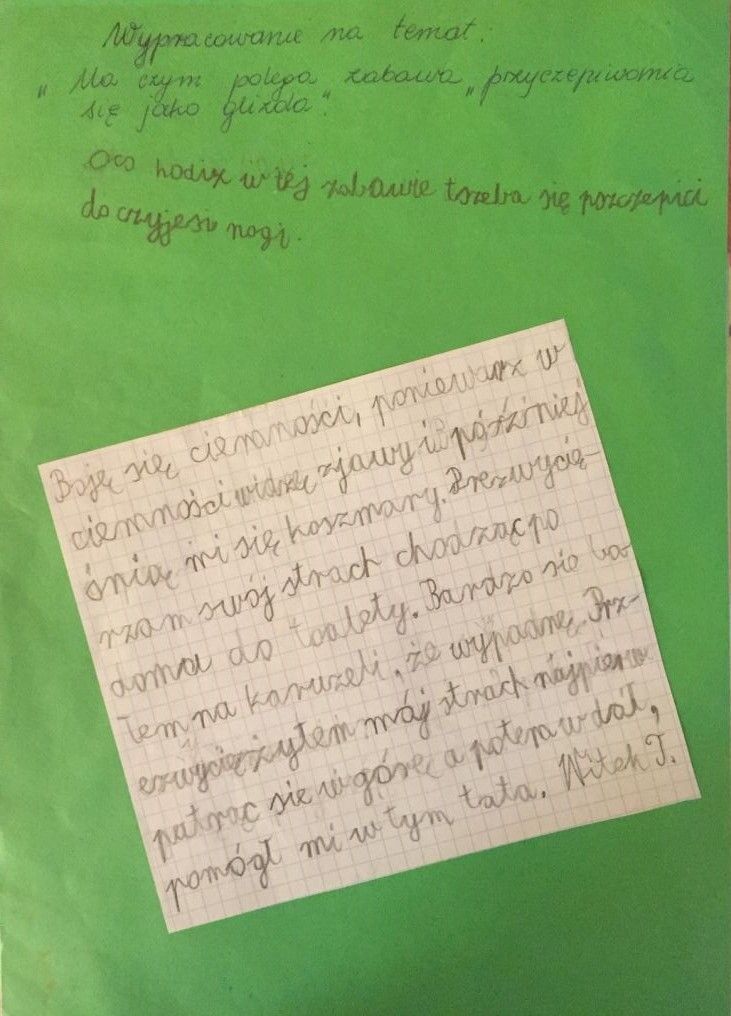 Wypracowanie na temat:
"Na czym polega zabawa "przyczepiwania
się jako glizda".
Oco hodzi w tej zabawie tszeba się pszczepici
do czyjejsi nogi.
Boję się ciemności, poniewarz w
ciemności widzę zjawy i późiniej
śnią mi się koszmary. Przezwycię-
rzam swój strach chodząc po
domu do toalety. Bardzo sie ba
łem na karuzeli, że wypadnę. Prz-
ezwyciężyłem mój strach najpierw
patrąc sie w górę a potem w dół,
pomógł mi w tym tata. Witek T.